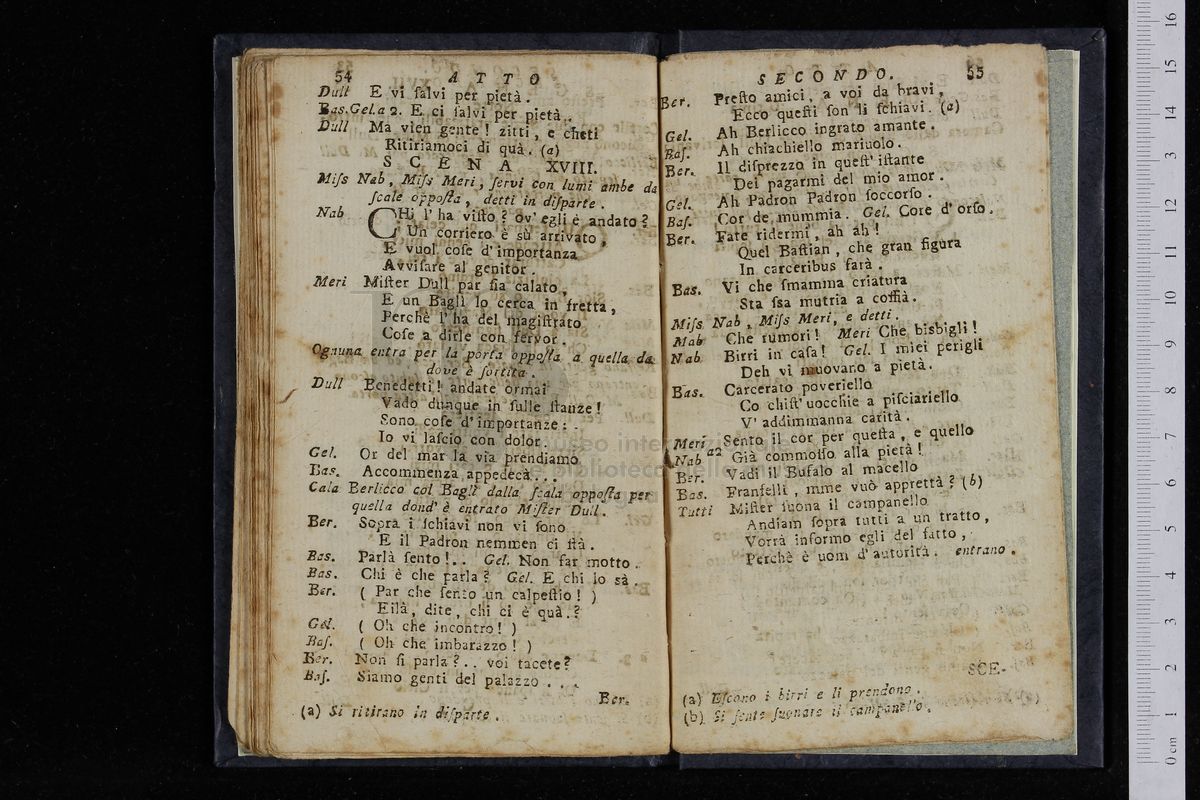 54 ATTO
Dull E vi ſalvi per pietà.
Bas.Gel.a 2. E ci ſalvi per pietà.
Dull Ma vien gente! zitti, e cheti
Ritiriamoci di quà. (a)
SCENA XVIII.
Miſs Nab, Miſs Meri, ſervi con lumi ambe da
ſcale oppoſta, detti in diſparte.
Nab CHi l'ha viſto? ov'egli è andato?
Un corriero è sù arrivato,
E vuol coſe d'importanza
Avviſare al genitor.
Meri Miſter Dull par ſia calato,
E un Baglì lo cerca in fretta,
Perchè l'ha del magiſtrato
Coſe a dirle con fervor.
Ognuna entra per la porta oppoſta a quella da
dove è ſortita.
Dull Benedetti! andate ormai
Vado dunque in ſulle ſtanze!
Sono coſe d'importanze:
Io vi laſcio con dolor.
Gel. Or del mar la via prendiamo
Bas. Accommenza appedecà...
Cala Berlicco col Baglì dalla ſcala oppoſta per
quella dond'è entrato Miſter Dull.
Ber. Sopra i ſchiavi non vi ſono
E il Padron nemmen ci ſtà.
Bas. Parlà ſento!.. Gel. Non far motto.
Bas. Chi è che parla? Gel. E chi lo sà.
Ber. ( Par che ſento un calpeſtio! )
Eilà, dite, chi ci è quà.?
Gel. ( Oh che incontro! )
Baſ. ( Oh che imbarazzo! )
Ber. Non ſi parla?.. voi tacete?
Baſ. Siamo genti del palazzo...
Ber.
(a) Si ritirano in diſparte.
SECONDO. 55
Ber. Preſto amici, a voi da bravi,
Ecco queſti ſon li ſchiavi. (a)
Gel. Ah Berlicco ingrato amante
Baſ. Ah chiachiello mariuolo.
Ber. Il diſprezzo in queſt'iſtante
Dei pagarmi del mio amor.
Gel. Ah Padron Padron ſoccorſo.
Baſ. Cor de mummia. Gel. Core d'orſo.
Ber. Fate ridermi, ah ah!
Quel Baſtian, che gran figura
In carceribus farà.
Bas. Vi che ſmamma criatura
Sta ſsa mutria a coffià.
Miſs Nab, Miſs Meri, e detti.
Mab Che rumori! Meri Che bisbigli!
Nab Birri in caſa! Gel. I miei perigli
Deh vi muovano a pietà.
Bas. Carcerato poveriello
Co chiſt'uocchie a piſciariello
V'addimmanna carità.
Meri Sento il cor per queſta, e quello
Nab a2 Già commoſſo alla pietà!
Ber. Vadi il Bufalo al macello
Bas. Franfelli, mme vuò apprettà? (b)
Tutti Miſter ſuona il campanello
Andiam ſopra tutti a un tratto,
Vorrà informo egli del fatto,
Perchè è uom d'autorità. entrano.
SCE-
(a) Eſcono i birri e li prendono.
(b) Si ſente ſuonare il campanello.